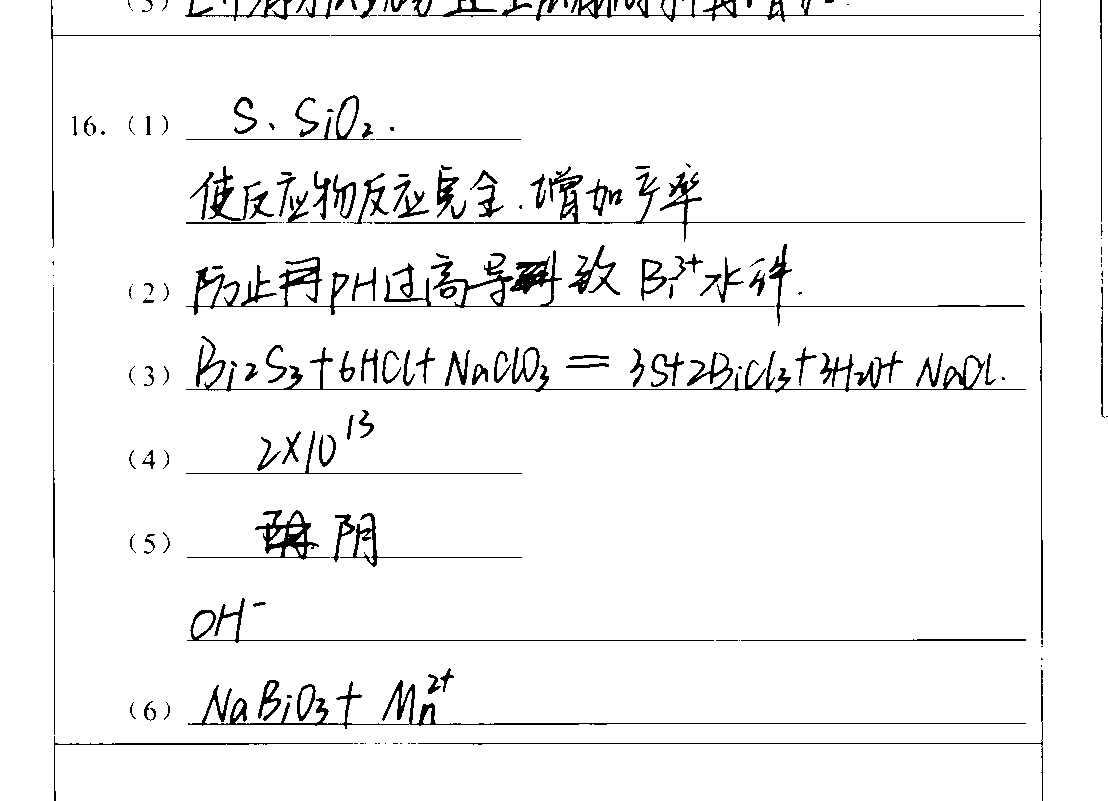 16. (1) S、SiO₂.
使反应物反应完全.增加产率
(2) 防止 PH过高导致 Bi³⁺水解.
(3) Bi2S3+6HCl+NaClO3 = 3S+2BiCl3+3H2O+ NaCl.
(4) 2×10¹³
(5) 阴
OH⁻
(6) NaBiO3+ Mn²⁺